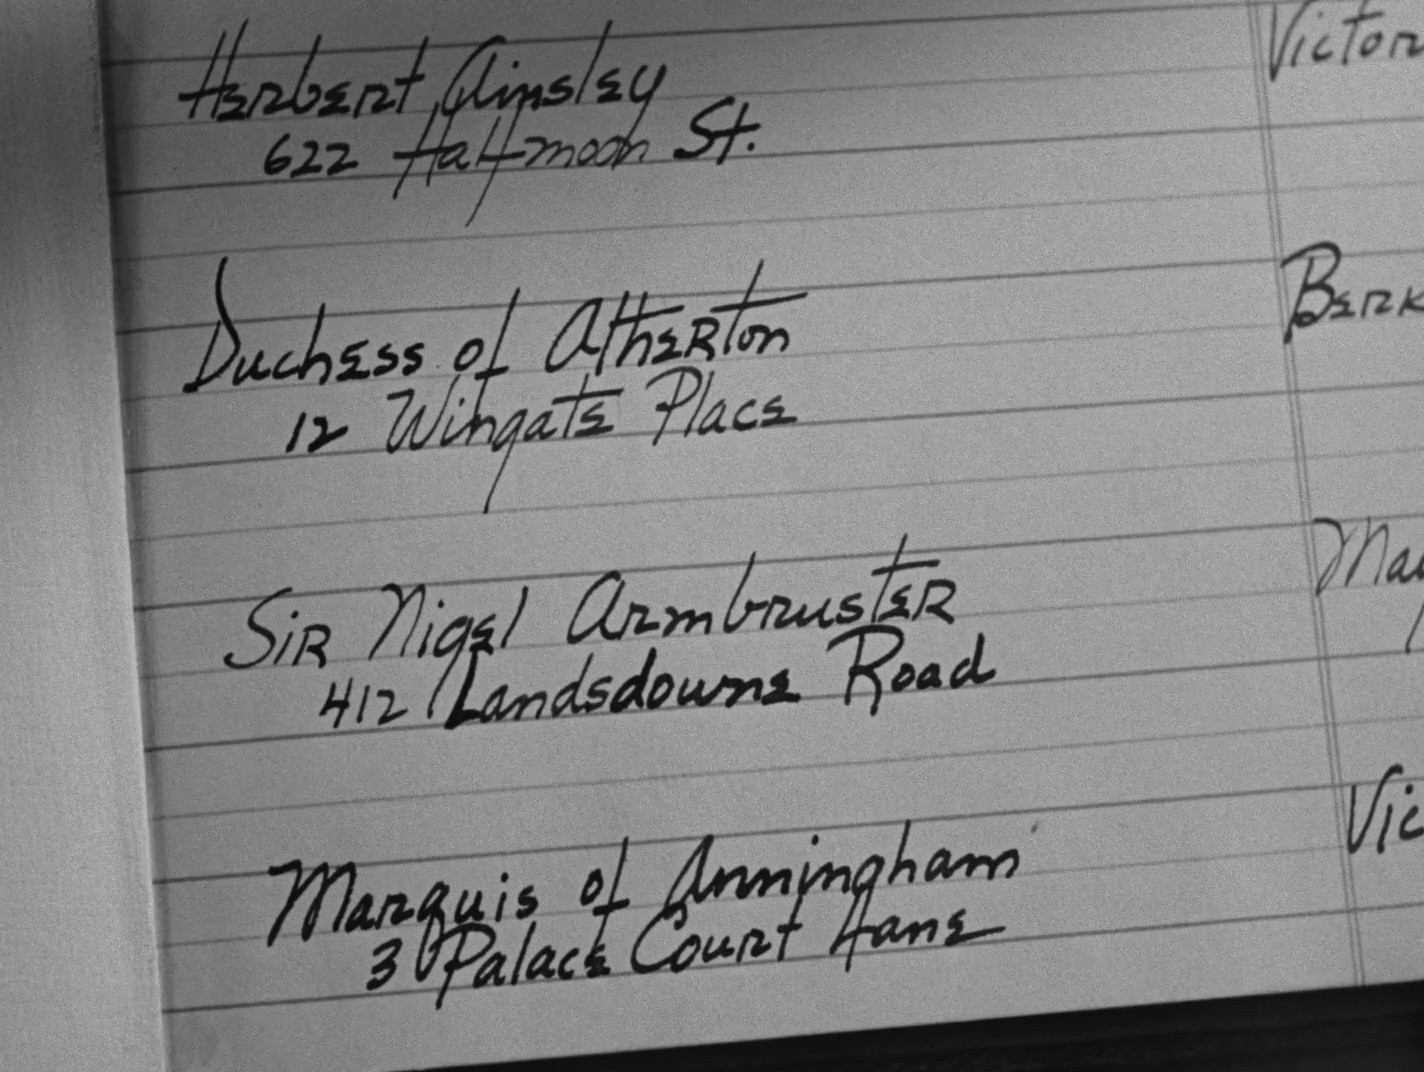 Herbert Ainsley
Victor
622 Halfmoon St.
Duchess of Atherton
Berk
12 Wingate Place
Sir Nigel Armbruster
May
412 Landsdowne Road
Marquis of Anningham
Vic
3 Palace Court Lane